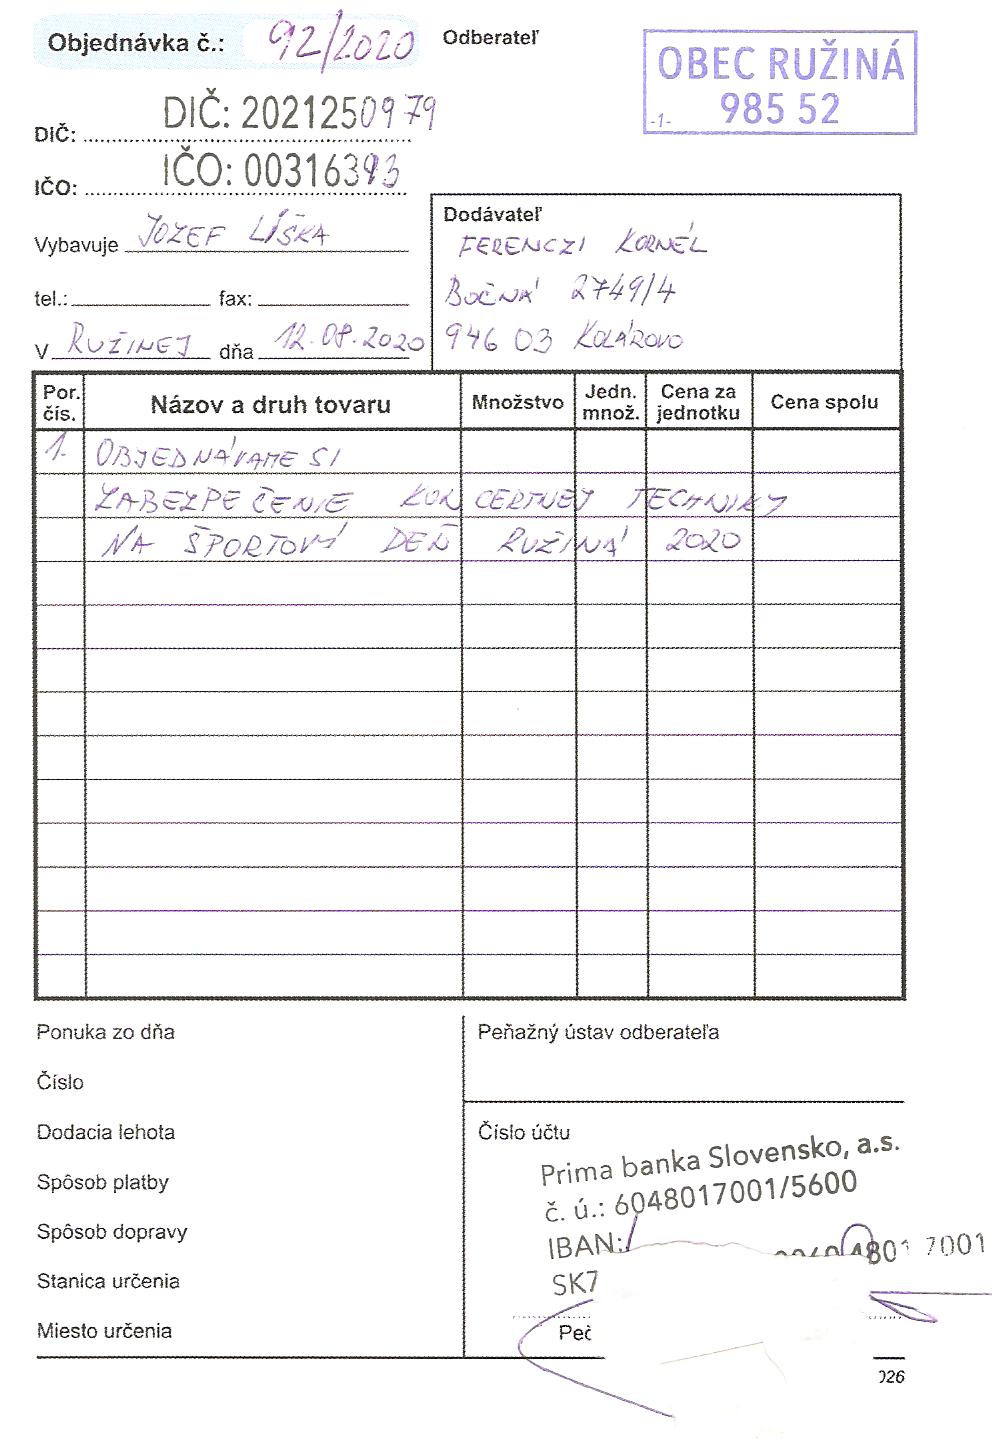 Objednávka č.: 92/2020
Odberateľ
OBEC RUŽINÁ
985 52
-1-
DIČ: DIČ: 2021250979
IČO: IČO: 00316393
Vybavuje JOZEF LÍŠKA
tel.: fax:
V RUŽINEJ dňa 12.08.2020
Dodávateľ
FERENCZI KORNÉL
BOČNÁ 2749/4
946 03 KOLÁROVO
Por. čís. Názov a druh tovaru Množstvo Jedn. množ. Cena za jednotku Cena spolu
1. OBJEDNÁVAME SI
ZABEZPEČENIE KONCERTNEJ TECHNIKY
NA ŠPORTOVÝ DEŇ RUŽINÁ 2020
Ponuka zo dňa
Číslo
Dodacia lehota
Spôsob platby
Spôsob dopravy
Stanica určenia
Miesto určenia
Peňažný ústav odberateľa
Číslo účtu
Prima banka Slovensko, a.s.
č. ú.: 6048017001/5600
IBAN: 7001
SK7
Peč
026